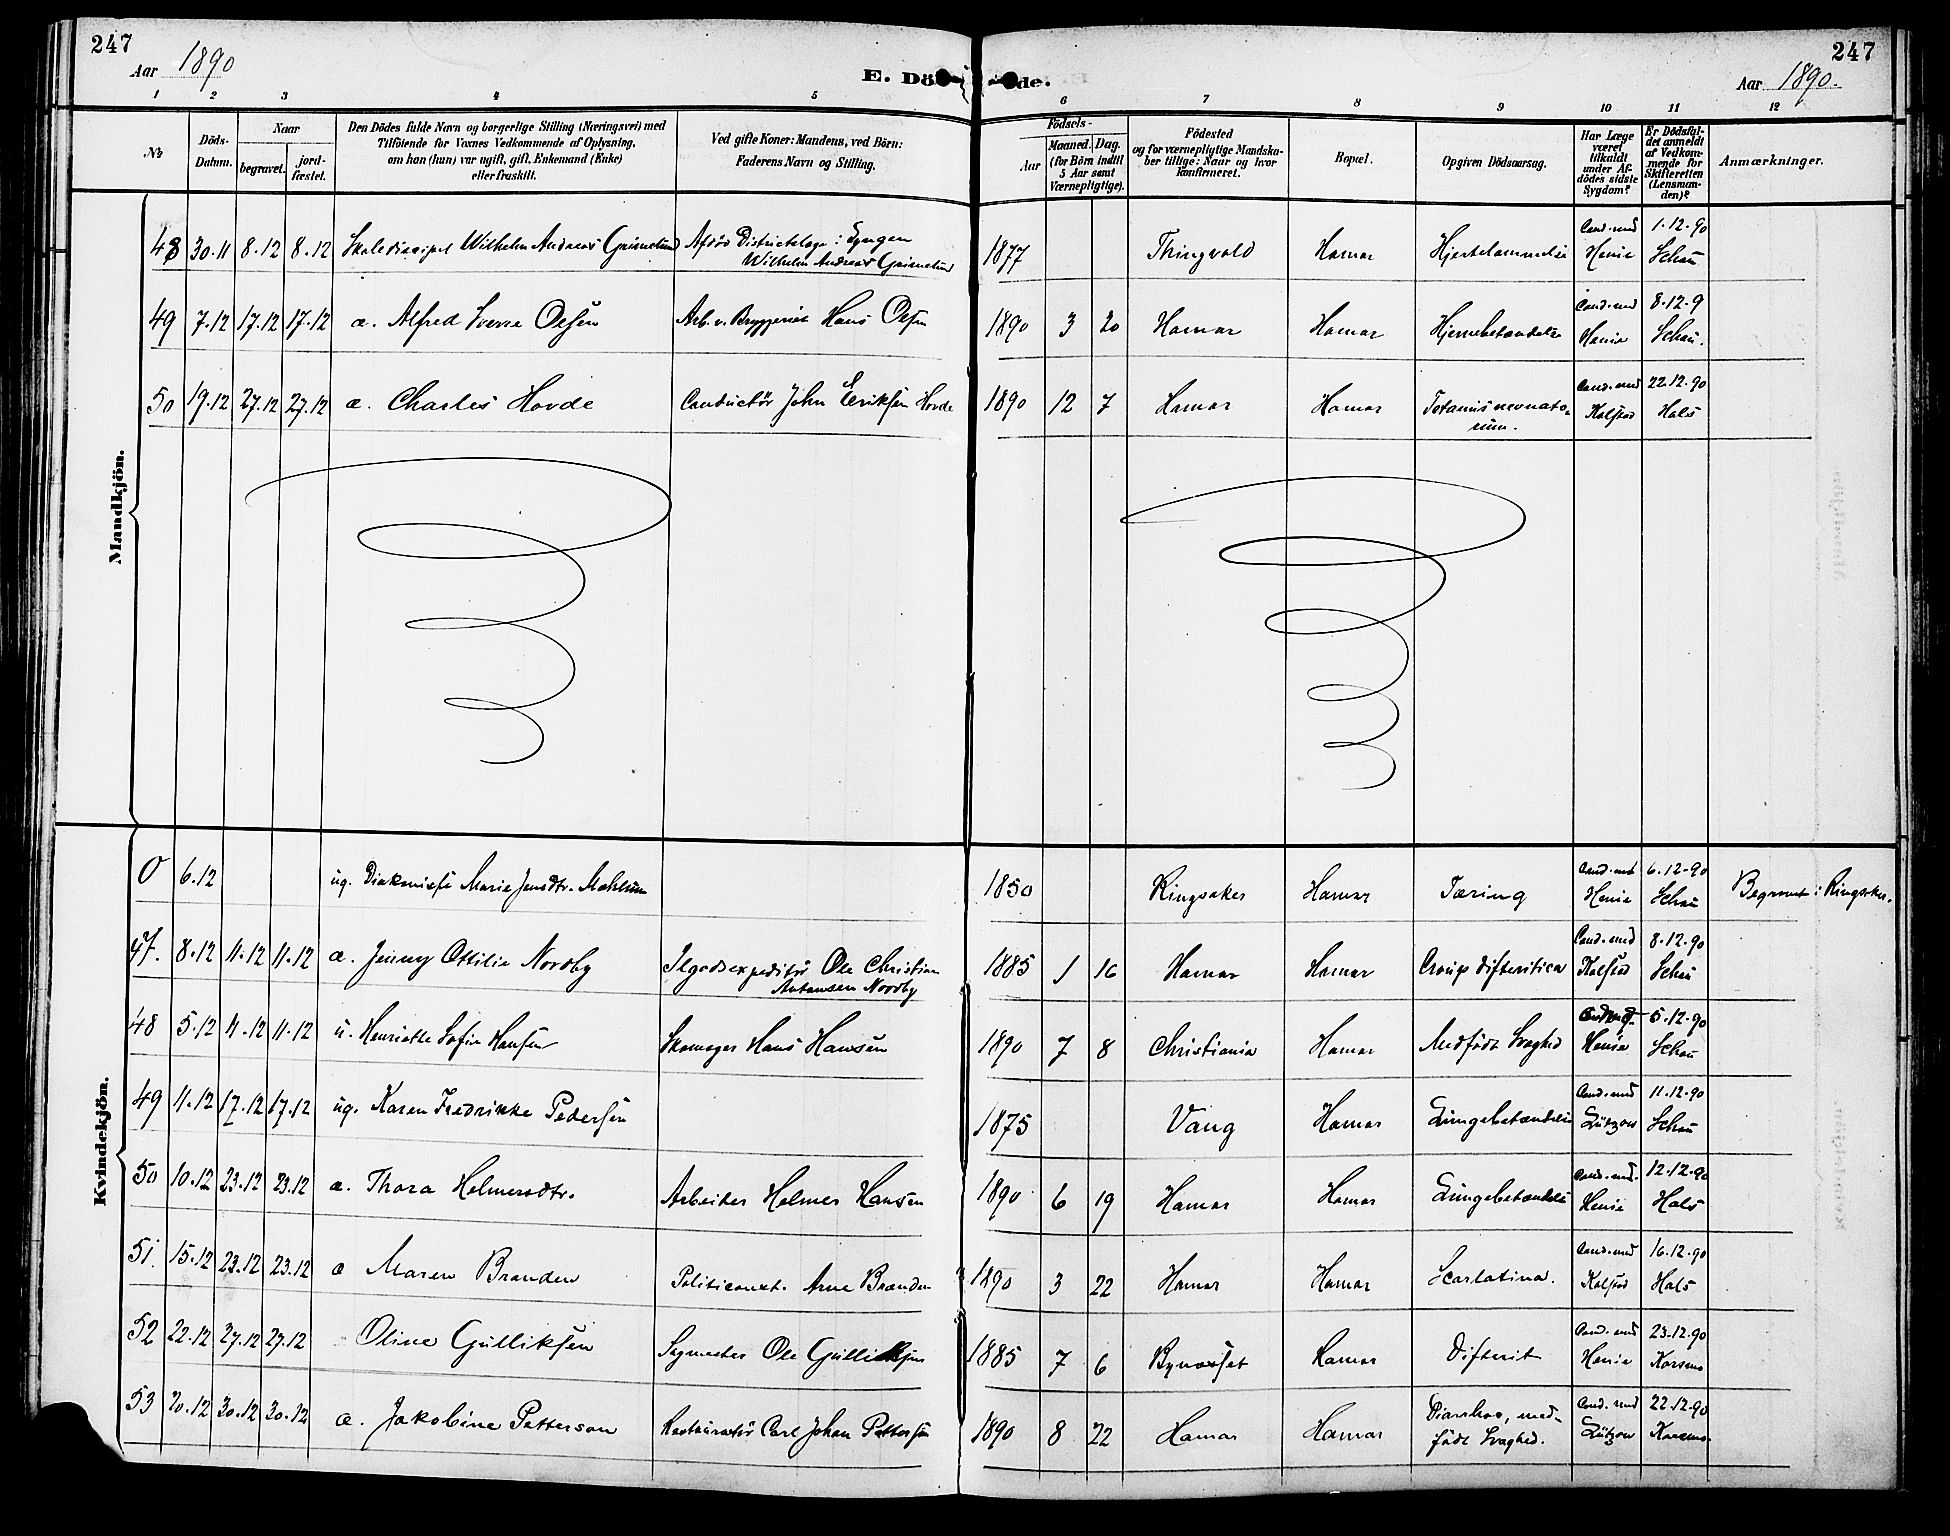 247
Aar 1890
E. Dö de.
247
Aar 1890.
1 2 3 4 5 6 7 8 9 10 11 12
No
Döds-Datum.
Naar
begravet.
jord-fæstet.
Den Dödes fulde Navn og borgerlige Stilling (Næringsvei) med
Tilföiende for Voxnes Vedkommende af Oplysning,
om han (hun) var ugift, gift, Enkemand (Enke)
eller fraskilt.
Ved gifte Koner: Mandens, ved Börn:
Faderens Navn og Stilling.
Födsels-
Aar
Maaned. Dag.
(for Börn indtil
5 Aar samt
Værnepligtige).
Födested
og for værnepligtige Mandska-
ber tillige: Naar og hvor
konfirmeret.
Bopæl.
Opgiven Dödsaarsag.
Har Læge
været
tilkaldt
under Af-
dödes sidste
Sygdom?
Er Dödsfal-
det anmeldt
af Vedkom-
mende for
Skifteretten
(Lensman-
den)?
Anmærkninger.
Mandkjön.
48 30.11 8.12 8.12 Skolediscipel Wilhelm Andreas Grimelund Afdød Districtslæge i Lyngen Wilhelm Andreas Grimelund 1877 Thingvold Hamar Hjertelammelse Cand. med Henie 1.12.90 Schau
49 7.12 17.12 17.12 æ. Alfred Sverre Olsen Arb. v. Bryggeriet Hans Olsen 1890 3 20 Hamar Hamar Hjernebetændelse Cand. med Henie 8.12.9 Schau.
50 19.12 27.12 27.12 æ. Charles Hovde Conductör John Eriksen Hovde 1890 12 7 Hamar Hamar Tetanus neonato-rum. Cand. med Kolstad 22.12.90 Hals
Kvindekjön.
0 6.12 ug. Diakonisse Marie Jensdtr. Mæhlum 1850 Ringsaker Hamar Tæring Cand. med Henie 6.12.90 Schau Begravet i Ringsaker.
47. 8.12 11.12 11.12 æ. Jenny Ottilie Nordby Ilgodsexpeditör Ole Christian Antonsen Nordby 1885 1 16 Hamar Hamar Croup difteritica Cand. med Kolstad 8.12.90 Schau
48 5.12 11.12 11.12 u. Henriette Sofie Hansen Skomager Hans Hansen 1890 7 8 Christiania Hamar Medfödt Svaghed Cand. med. Henie 5.12.90 Schau
49 11.12 17.12 17.12 ug. Karen Fredrikke Pedersen 1875 Vang Hamar Lungebetændelse Cand. med Lützow 11.12.90 Schau
50 10.12 23.12 23.12 æ. Thora Helmersdtr. Arbeider Helmer Hansen 1890 6 19 Hamar Hamar Lungebetændelse Cand. med. Henie 12.12.90 Hals
51. 15.12 23.12 23.12 æ Maren Brænden Politiconst. Arne Brænden 1890 3 22 Hamar Hamar Scarlatina. Cand. med Kolstad 16.12.90 Hals
52 22.12 27.12 27.12 Oline Gulliksen Sagmester Ole Gulliksen 1885 7 6 Bynæsset Hamar Difterit Cand. med Henie 23.12.90 Karsens
53 20.12 30.12 30.12 æ. Jakobine Petterson Restauratör Carl Johan Petterson 1890 8 22 Hamar Hamar Diarrhoe, med-födt Svaghed. Cand. med Lützow 22.12.90 Karsens